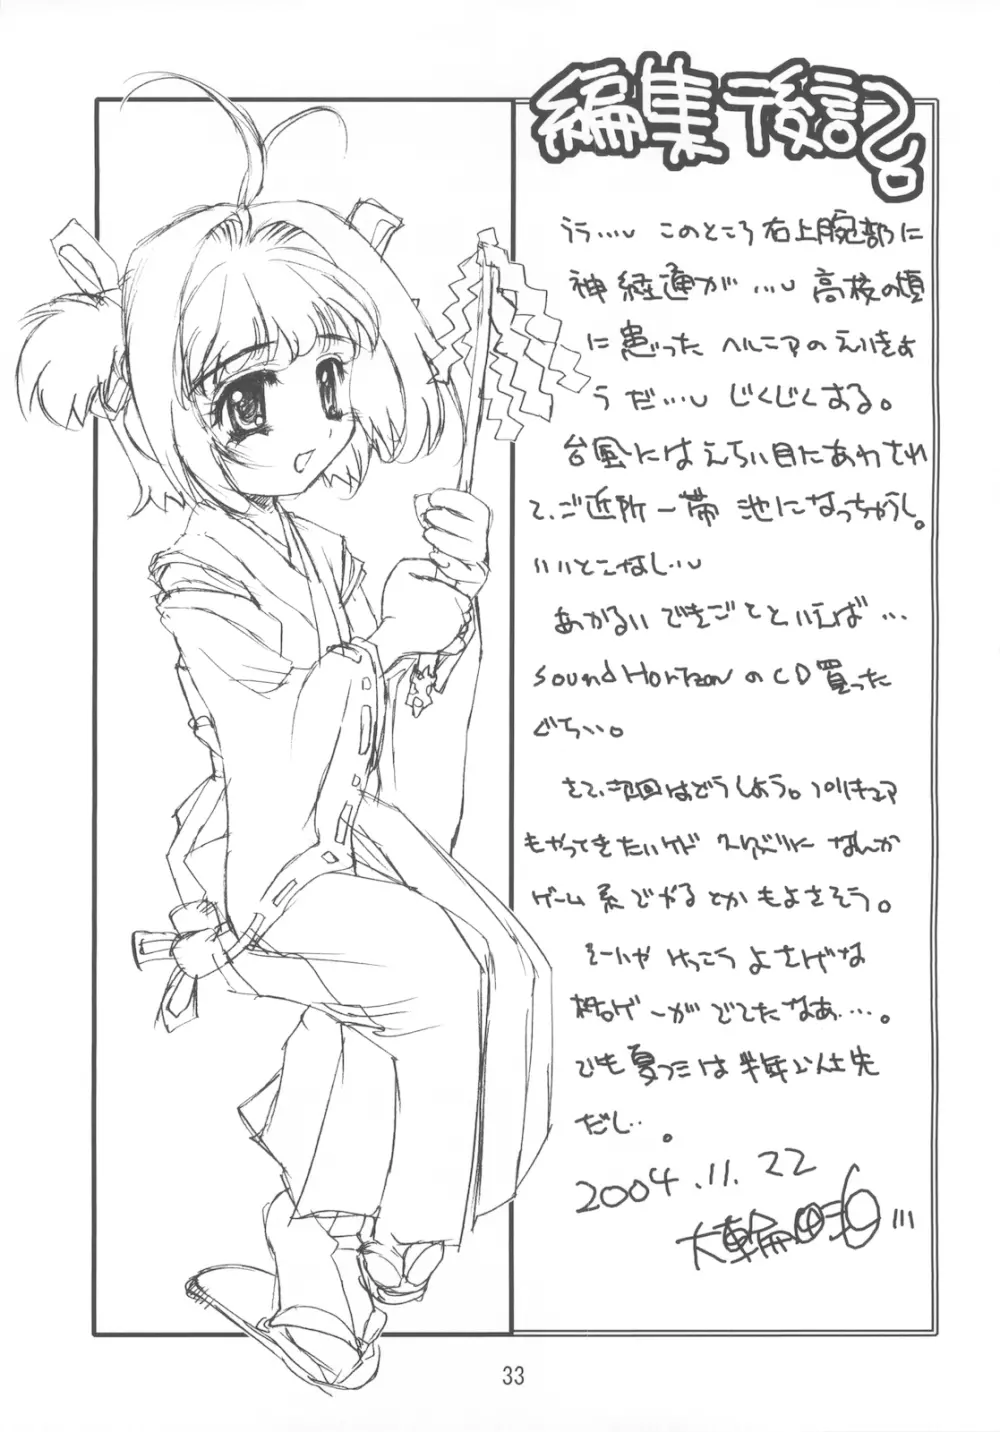 編集後記
うう…、このところ右上腕部に
神経痛が…、高校の頃
に患ったヘルニアのえいきょ
うだ…、じくじくする。
台風にはえらい目にあわされ
て、ご近所一帯 池になっちゃうし。
いいとこなし…、
あかるいできごとといえば…
Sound HorizonのCD買った
ぐらい。
さて、次回はどうしよう。プリキュア
もやってきたいけど なんか
ゲーム系でやるとかもよさそう。
そーいやけっこうよさげな
ゲーがでてたなあ…。
でも夏コミは半年以上先
だし…。
2004.11.22
大輪
33